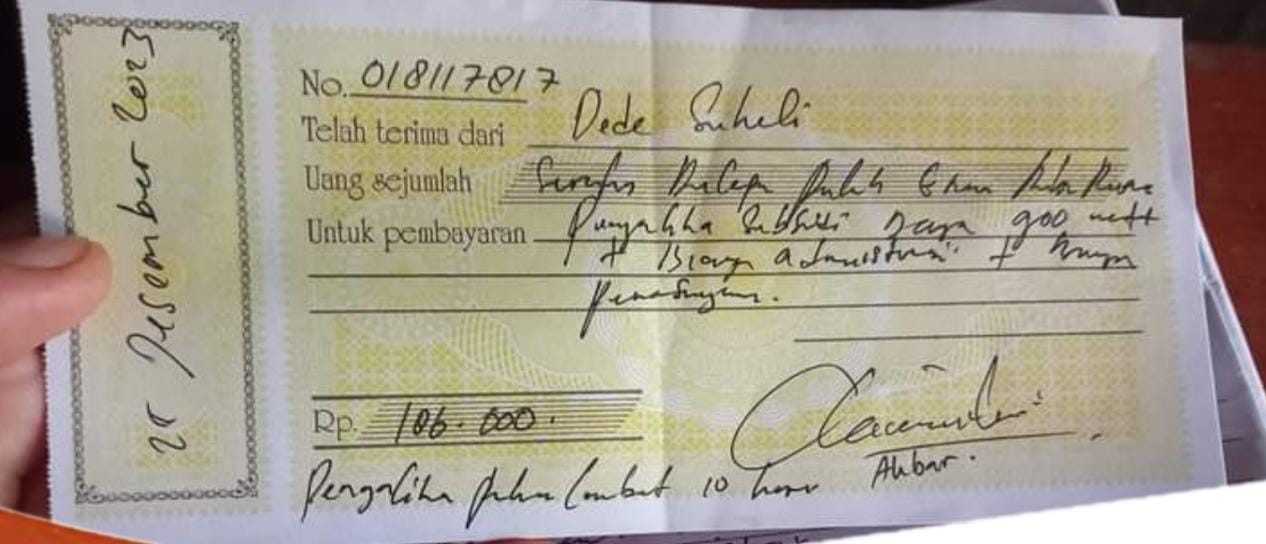 25 Desember 2023
No. 018117817
Telah terima dari Dede Suheli
Uang sejumlah Seratus Delapan Puluh Enam Ribu Rupiah
Untuk pembayaran Pengaliha Subsidi Daya 900 watt
+ Biaya administrasi + biaya
pemasangan.
Rp. 186.000.
Akbar.
Pengaliha paling lambat 10 hari